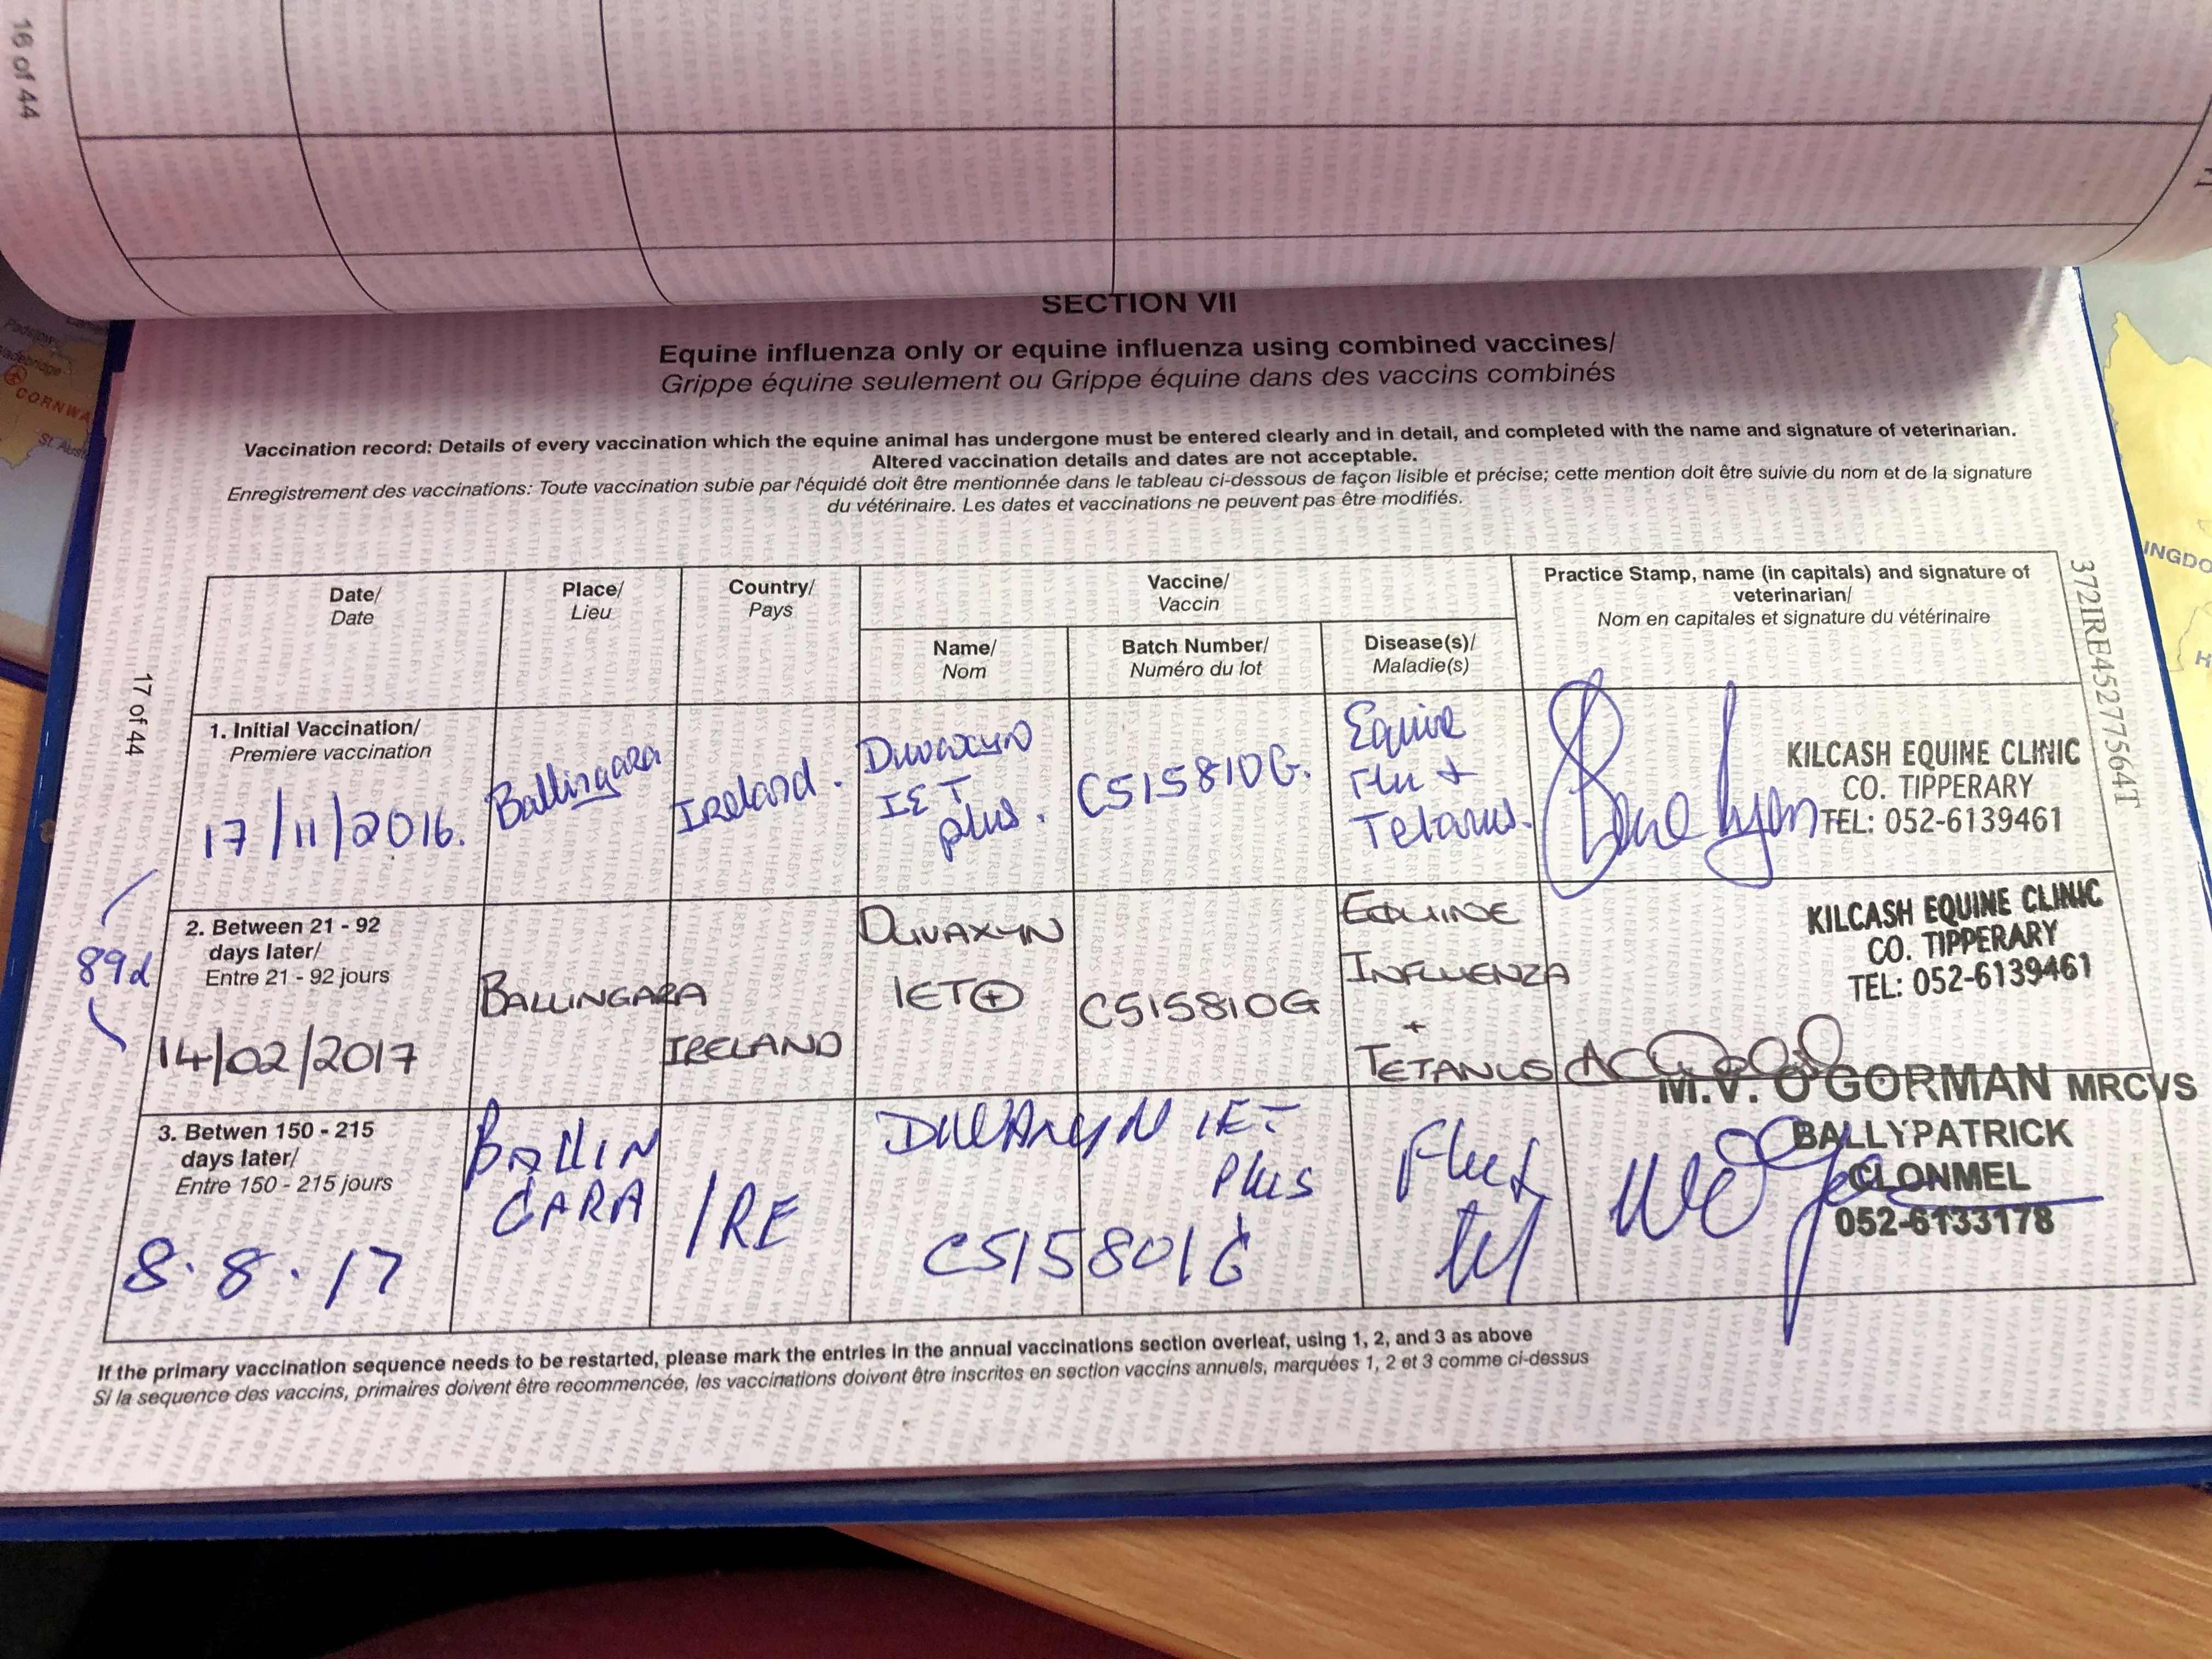 16 of 44
SECTION VII
Equine influenza only or equine influenza using combined vaccines/
Grippe équine seulement ou Grippe équine dans des vaccins combinés
Vaccination record: Details of every vaccination which the equine animal has undergone must be entered clearly and in detail, and completed with the name and signature of veterinarian.
Altered vaccination details and dates are not acceptable.
Enregistrement des vaccinations: Toute vaccination subie par l'équidé doit être mentionnée dans le tableau ci-dessous de façon lisible et précise; cette mention doit être suivie du nom et de la signature
du vétérinaire. Les dates et vaccinations ne peuvent pas être modifiés.
Date/
Date
Place/
Lieu
Country/
Pays
Vaccine/
Vaccin
Name/
Nom
Batch Number/
Numéro du lot
Disease(s)/
Maladie(s)
Practice Stamp, name (in capitals) and signature of
veterinarian/
Nom en capitales et signature du vétérinaire
372IRE45277564T
17 of 44
1. Initial Vaccination/
Premiere vaccination
17/11/2016.
Ballingara
Ireland.
Duvaxyn
IE T
plus.
C515810G.
Equine
Flu +
Tetanus.
KILCASH EQUINE CLINIC
CO. TIPPERARY
TEL: 052-6139461
89d
2. Between 21 - 92
days later/
Entre 21 - 92 jours
14/02/2017
BALLINGARA
IRELAND
DUVAXYN
IET+
C515810G
EQUINE
INFLUENZA
+
TETANUS
KILCASH EQUINE CLINIC
CO. TIPPERARY
TEL: 052-6139461
3. Betwen 150 - 215
days later/
Entre 150 - 215 jours
8.8.17
BALLIN
GARA
IRE
DUVAXYN IET
Plus
C515801G
Flu +
tet
M.V. O'GORMAN MRCVS
BALLYPATRICK
CLONMEL
052-6133178
If the primary vaccination sequence needs to be restarted, please mark the entries in the annual vaccinations section overleaf, using 1, 2, and 3 as above
Si la sequence des vaccins, primaires doivent être recommencée, les vaccinations doivent être inscrites en section vaccins annuels, marquées 1, 2 et 3 comme ci-dessus
CORNWA
INGDO